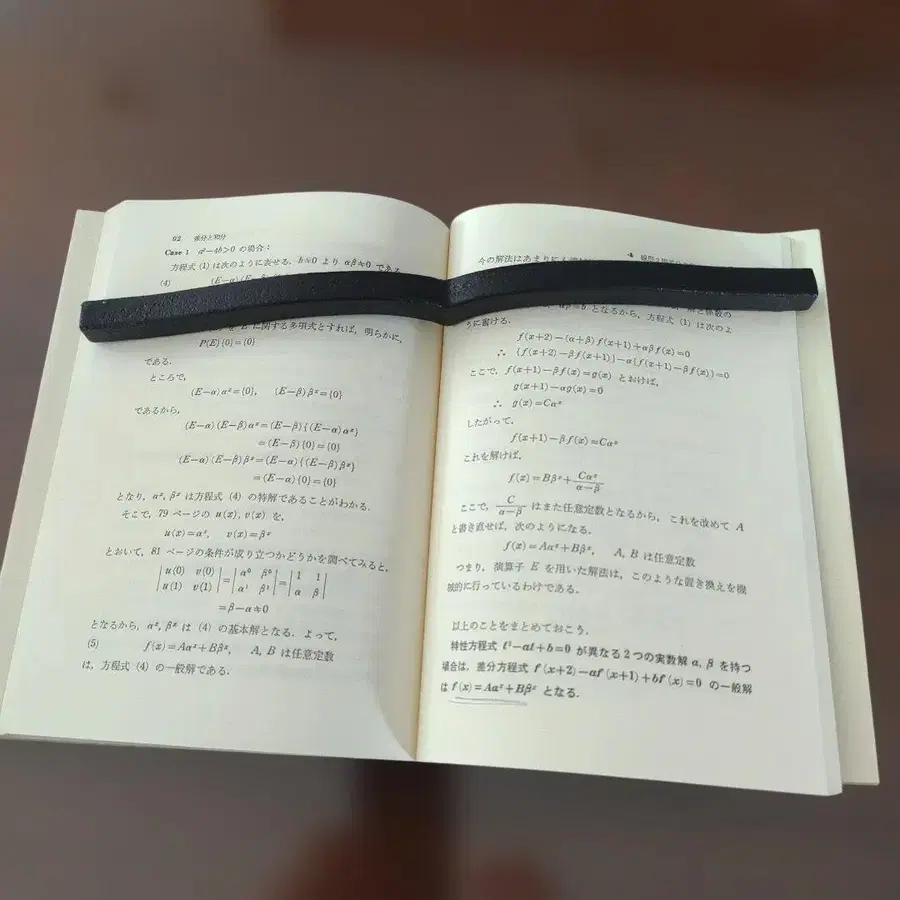 92 差分と和分
Case 1 a²−4b>0 の場合：
方程式 (1) は次のように表せる．b≒0 より αβ≒0 である
(4) (E−α)(E−β)
を E に関する多項式とすれば，明らかに，
P(E){0}={0}
である．
ところで，
(E−α)αˣ={0}, (E−β)βˣ={0}
であるから，
(E−α)(E−β)αˣ=(E−β){(E−α)αˣ}
=(E−β){0}={0}
(E−α)(E−β)βˣ=(E−α){(E−β)βˣ}
=(E−α){0}={0}
となり，αˣ, βˣ は方程式 (4) の特解であることがわかる．
そこで，79 ページの u(x), v(x) を，
u(x)=αˣ, v(x)=βˣ
とおいて，81 ページの条件が成り立つかどうかを調べてみると，
|u(0) v(0)| = |α⁰ β⁰| = |1 1|
|u(1) v(1)| |α¹ β¹| |α β|
=β−α≒0
となるから，αˣ, βˣ は (4) の基本解となる．よって，
(5) f(x)=Aαˣ+Bβˣ, A, B は任意定数
は，方程式 (4) の一般解である．
今の解法はあまりに
αβ=b となるから，方程式 (1) は次のよ
うに書ける．
f(x+2)−(α+β)f(x+1)+αβf(x)=0
∴ {f(x+2)−βf(x+1)}−α{f(x+1)−βf(x)}=0
ここで，f(x+1)−βf(x)=g(x) とおけば，
g(x+1)−αg(x)=0
∴ g(x)=Cαˣ
したがって，
f(x+1)−βf(x)=Cαˣ
これを解けば，
f(x)=Bβˣ+Cαˣ/(α−β)
ここで，C/(α−β) はまた任意定数となるから，これを改めて A
と書き直せば，次のようになる．
f(x)=Aαˣ+Bβˣ, A, B は任意定数
つまり，演算子 E を用いた解法は，このような置き換えを機
械的に行っているわけである．
以上のことをまとめておこう．
特性方程式 t²−at+b=0 が異なる 2 つの実数解 α, β を持つ
場合は，差分方程式 f(x+2)−af(x+1)+bf(x)=0 の一般解
は f(x)=Aαˣ+Bβˣ となる．